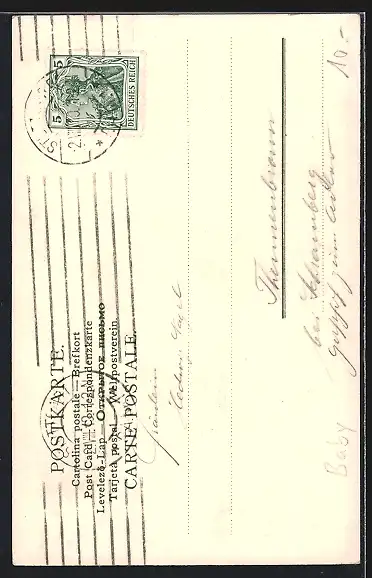 POSTKARTE.
Cartolina postale — Brefkort
Post Card — Correspondenzkarte
Levelező-Lap — Открытое письмо
Tarjeta postal — Weltpostverein.
CARTE POSTALE.
5 5
DEUTSCHES REICH
ST
Fräulein
Thennenbronn
bei Schramberg
Gasthof zum Adler
10.-
Baby